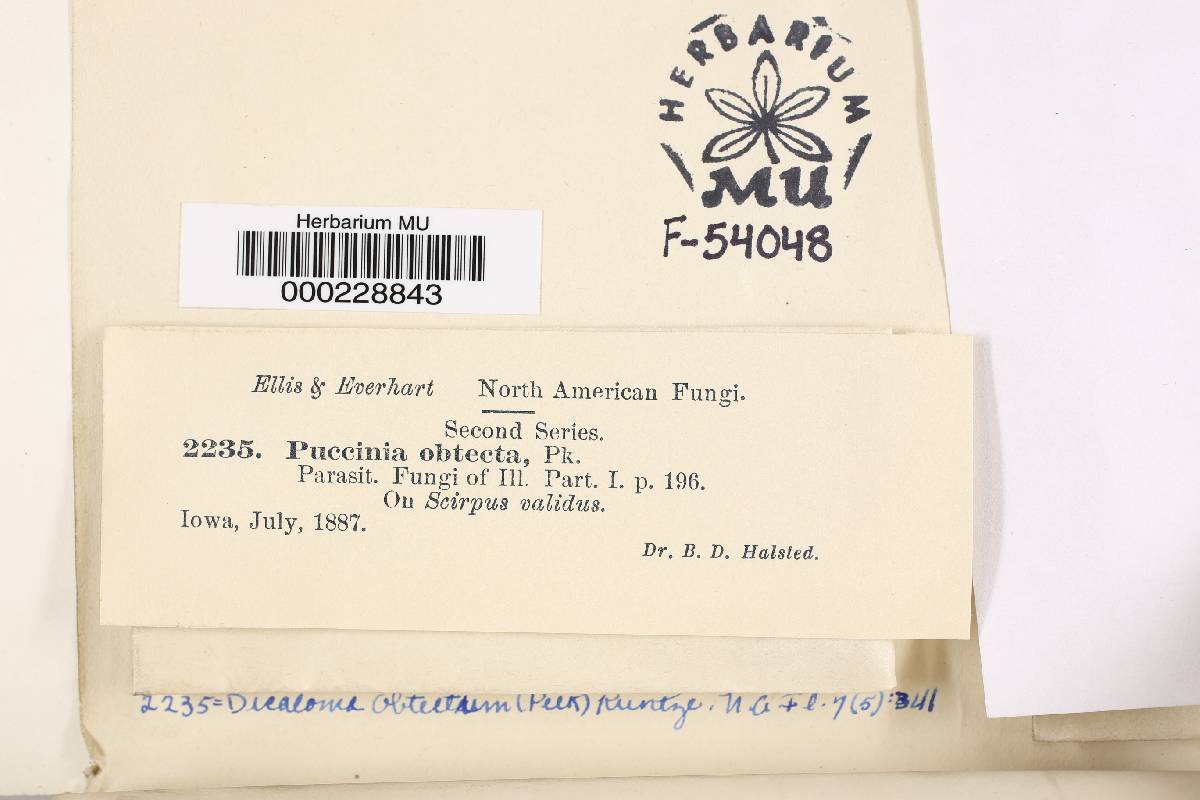 HERBARIUM
MU
F-54048
Herbarium MU
000228843
Ellis & Everhart North American Fungi.
Second Series.
2235. Puccinia obtecta, Pk.
Parasit. Fungi of Ill. Part. I. p. 196.
On Scirpus validus.
Iowa, July, 1887.
Dr. B. D. Halsted.
2235=Dicaeoma Obtectum (Peck) Kuntze. N.A.Fl. 7(5):341